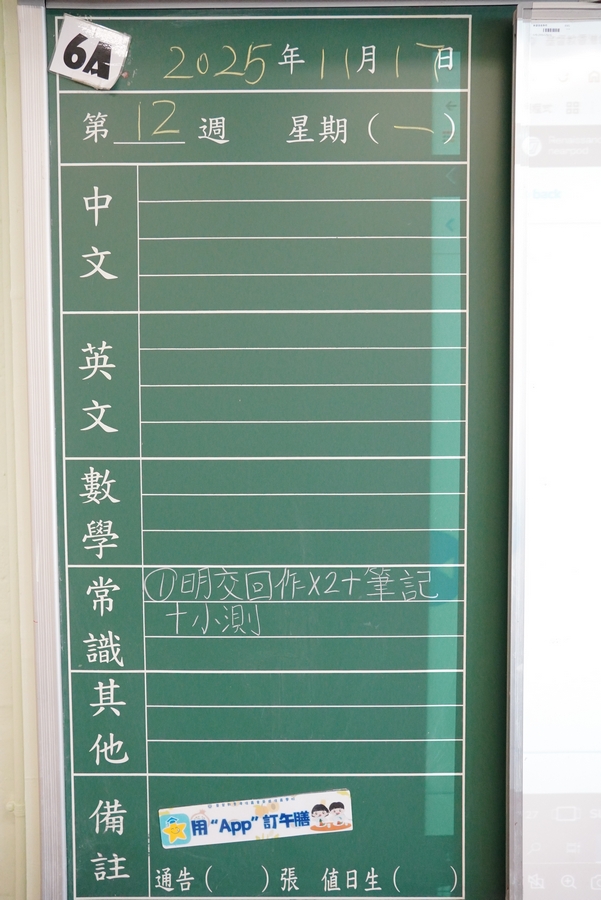 6A
2025年11月17日
第12週 星期(一)
中文
英文
數學
常識
①明交回作X2+筆記
+小測
其他
備註
用“App”訂午膳
通告( )張 值日生( )